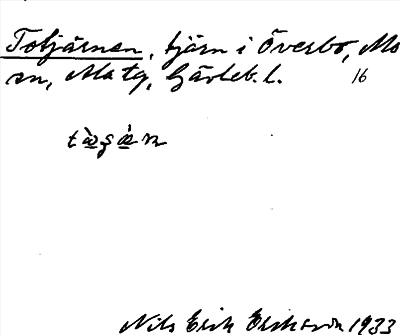 Totjärnen, tjärn i Överbo, Mo
sn, Matg, Gävleb. l. 16
Nils Erik Eriksson 1933